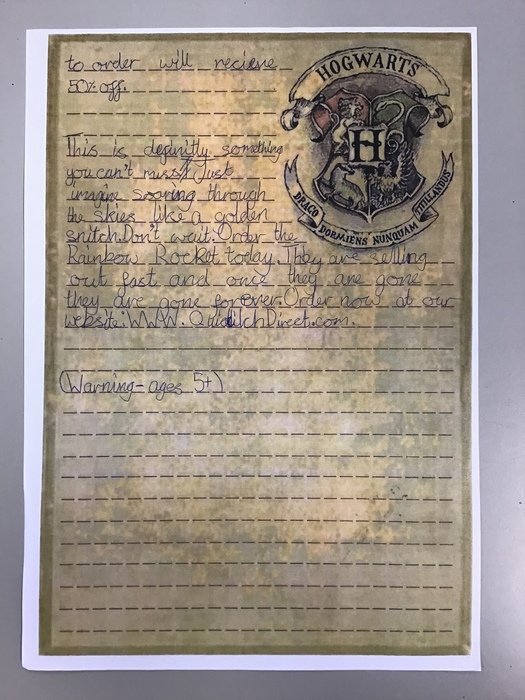 to order will recieve
50% off.
HOGWARTS
H
DRACO DORMIENS NUNQUAM TITILLANDUS
This is definitly something
you can't miss! Just
imagine soaring through
the skies like a golden
snitch. Don't wait. Order the
Rainbow Rocket today. They are selling
out fast and once they are gone
they are gone forever. Order now at our
website: WWW. QuidditchDirect.com.
(Warning- ages 5+)